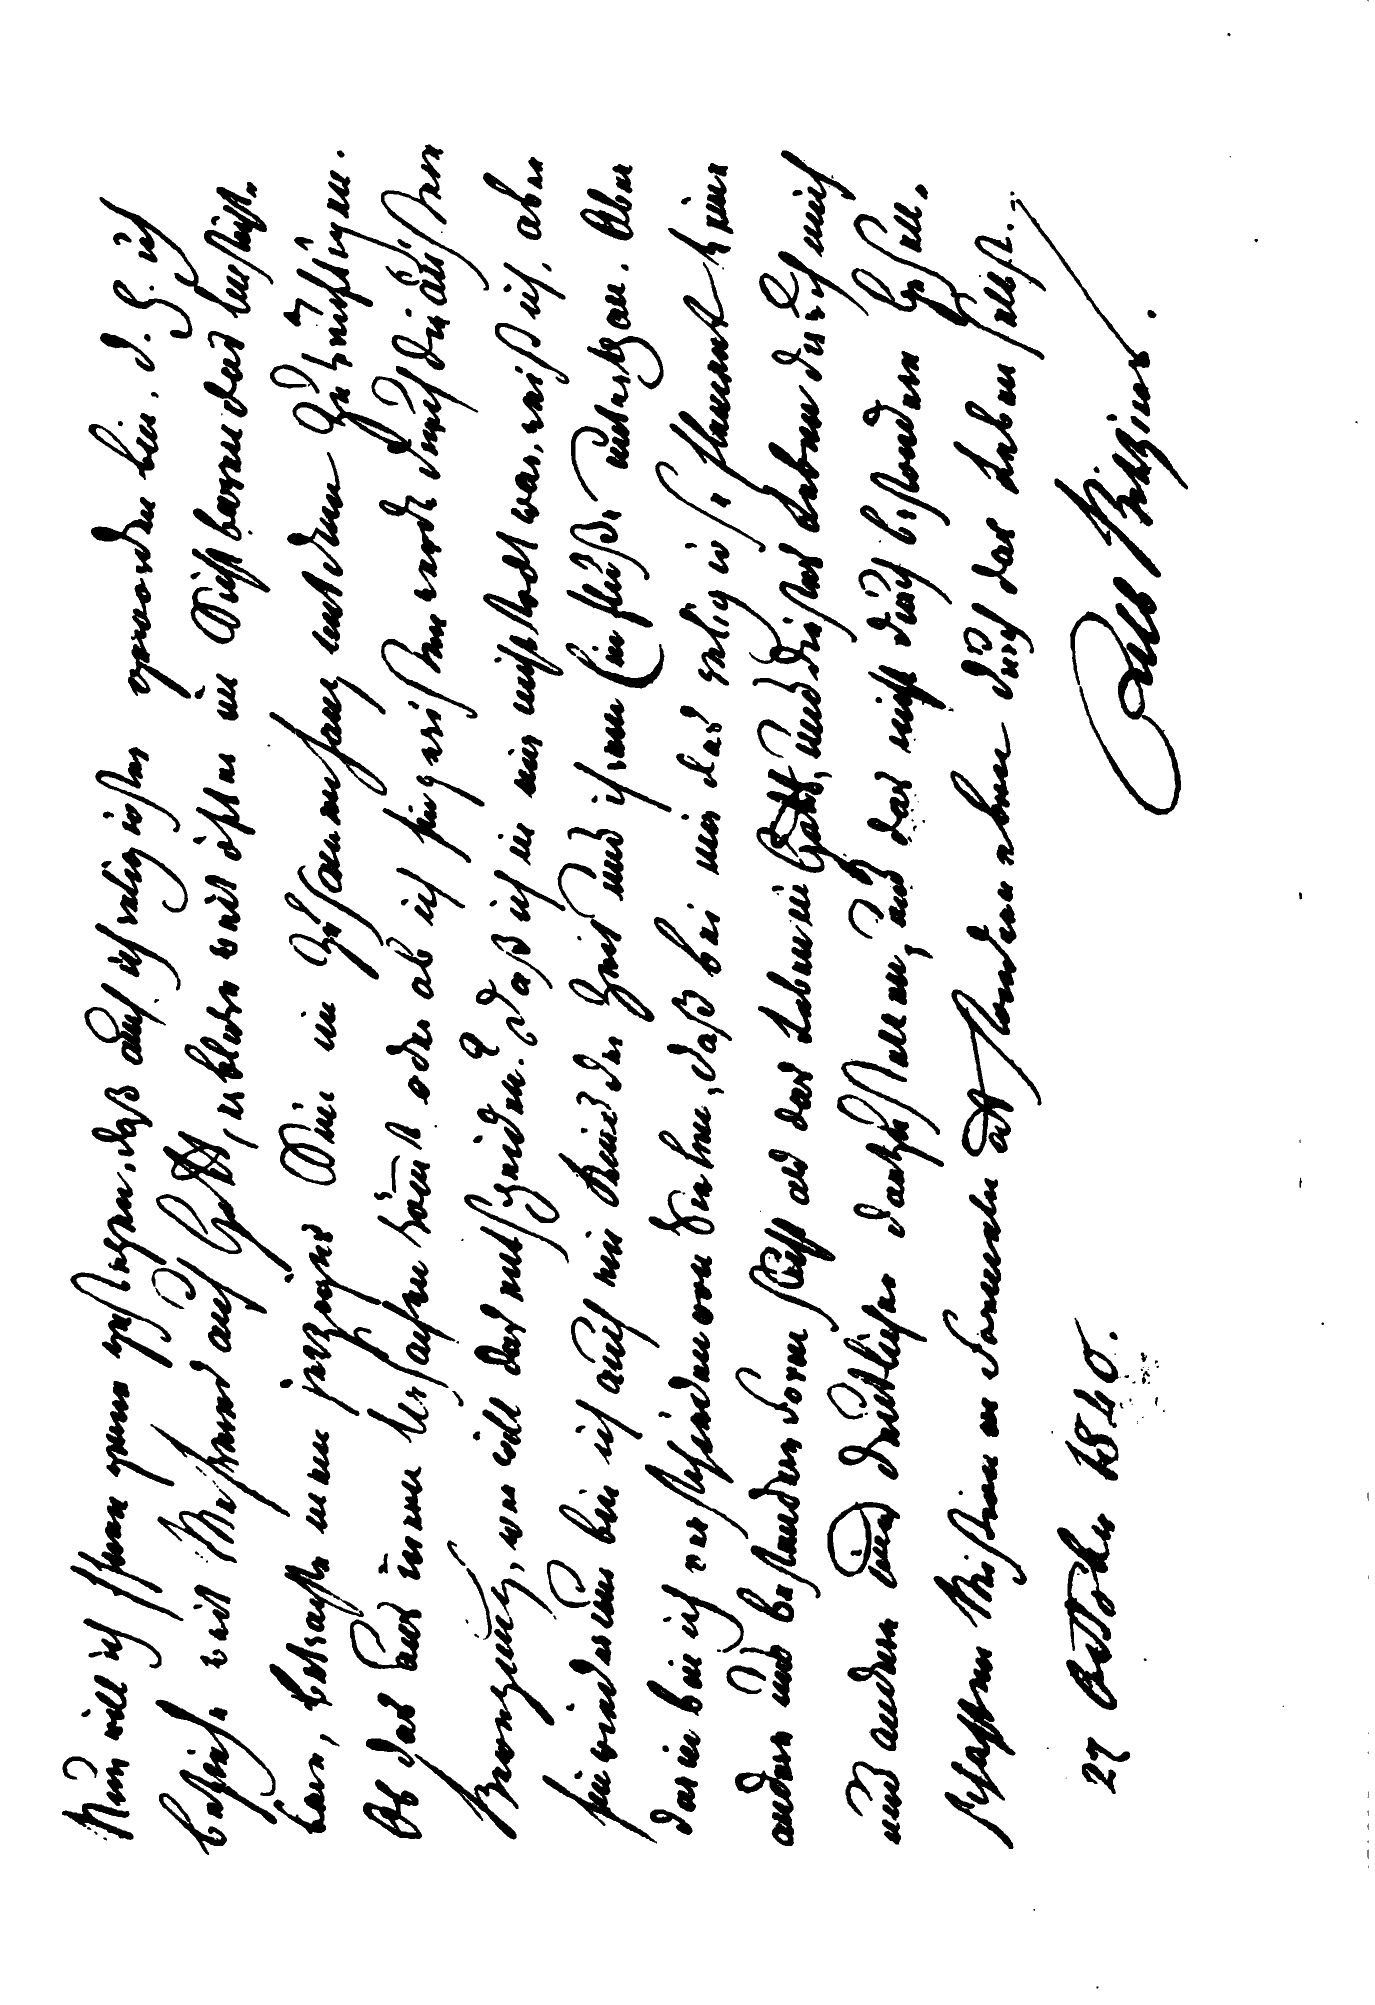 Nun will ich Ihnen gerne gestehen, daß auch ich religiöser geworden bin, d. h. ich
beziehe weit Mehreres auf Gott, erblicke weit öfter im Sichtbaren das Unsicht-
bare, betrachte unser jetziges Sein in Zusammenhang mit dem Zukünftigen.
Ob das aus innen oder ob ich hingerissen werde durch die äußern
Bewegung, wer will das entscheiden? Daß ich in mir nicht todt war, weiß ich, aber
hinwiederum bin ich auch ein Kind der Zeit und ihrem Einfluße unterzogen. Aber
darin bin ich verschieden von Vielen, daß bei mir das religiöse Element keine
andere und besondere Form sucht als das Leben in Gott, und dieses Leben durch mich
und andern deutlicher darzustellen, und das nicht durch besondern
in Formeln sondern eben durch das Leben selbst.
27 October 1840. Alb Bitzius.